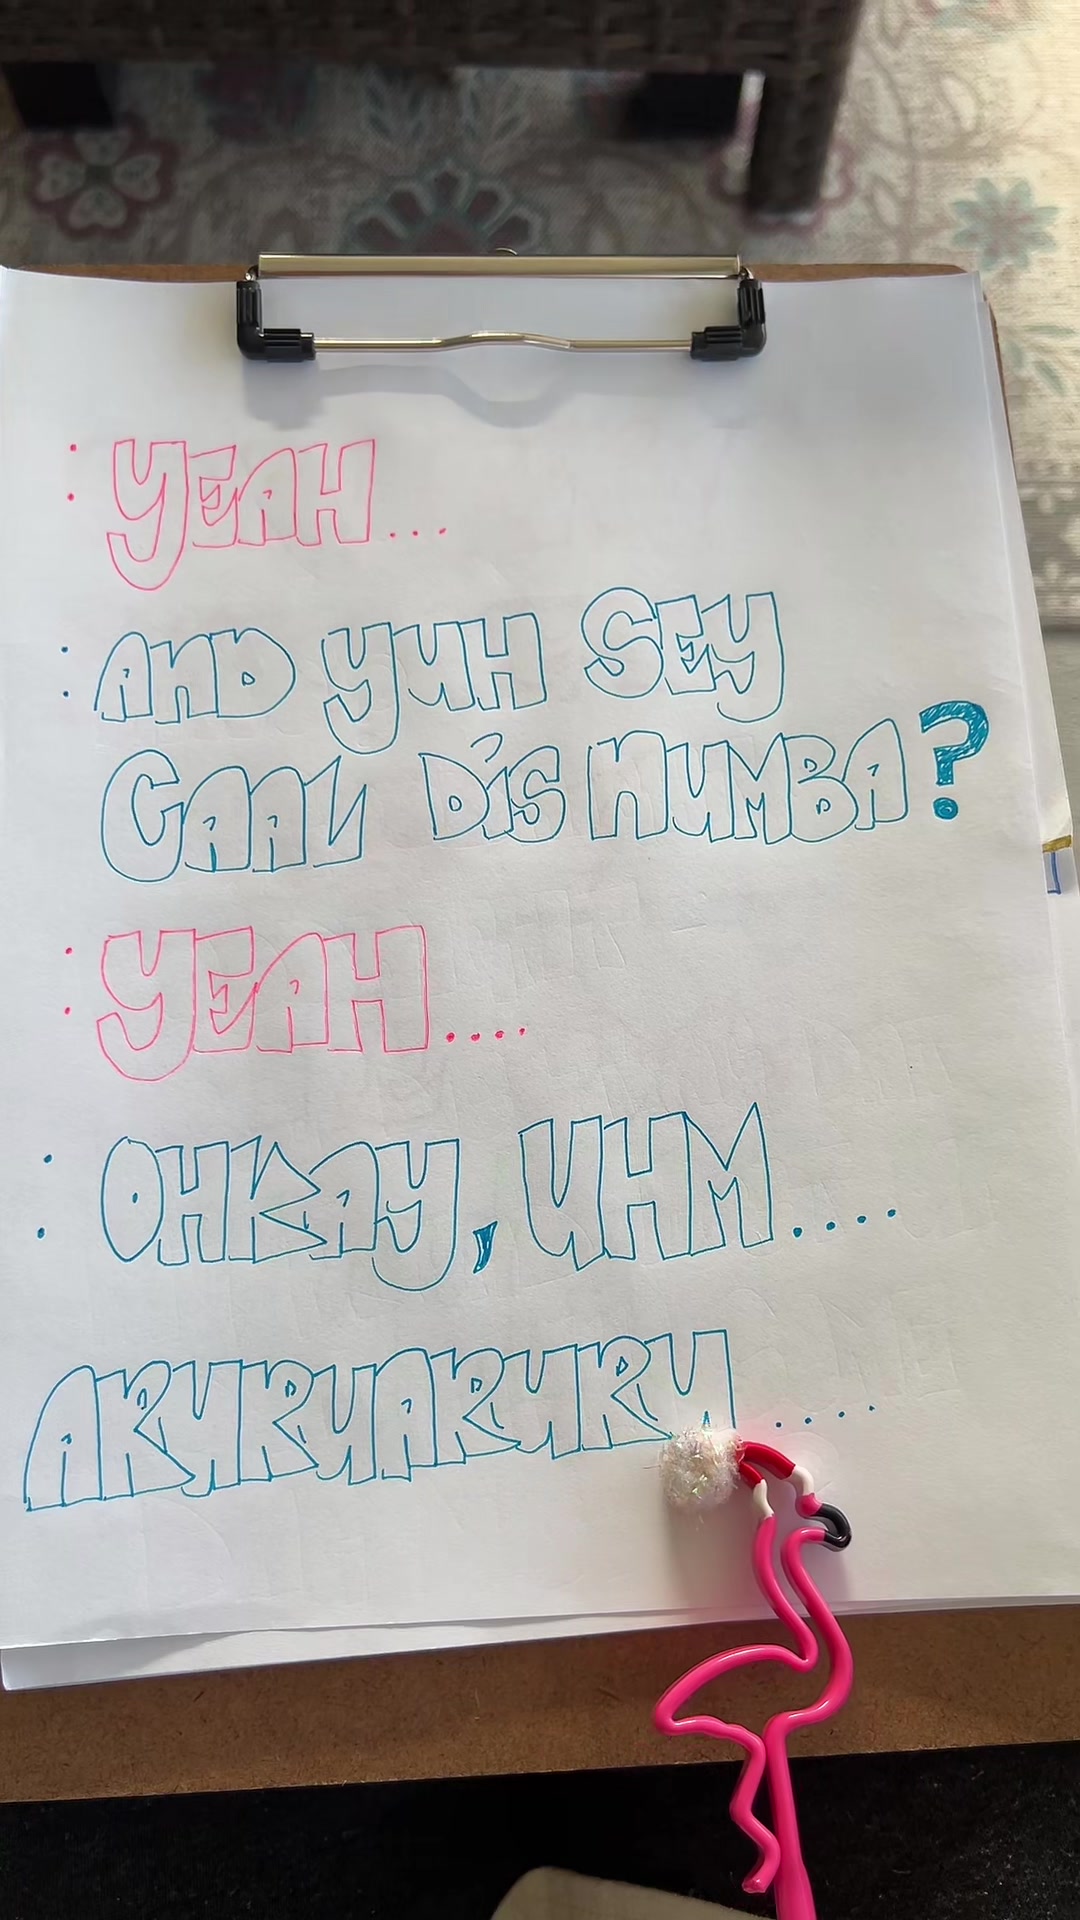 : YEAH...
: AND YUH SEY
CAAL DIS NUMBA?
: YEAH....
: OHKAY, UHM....
AKURUAKURU....